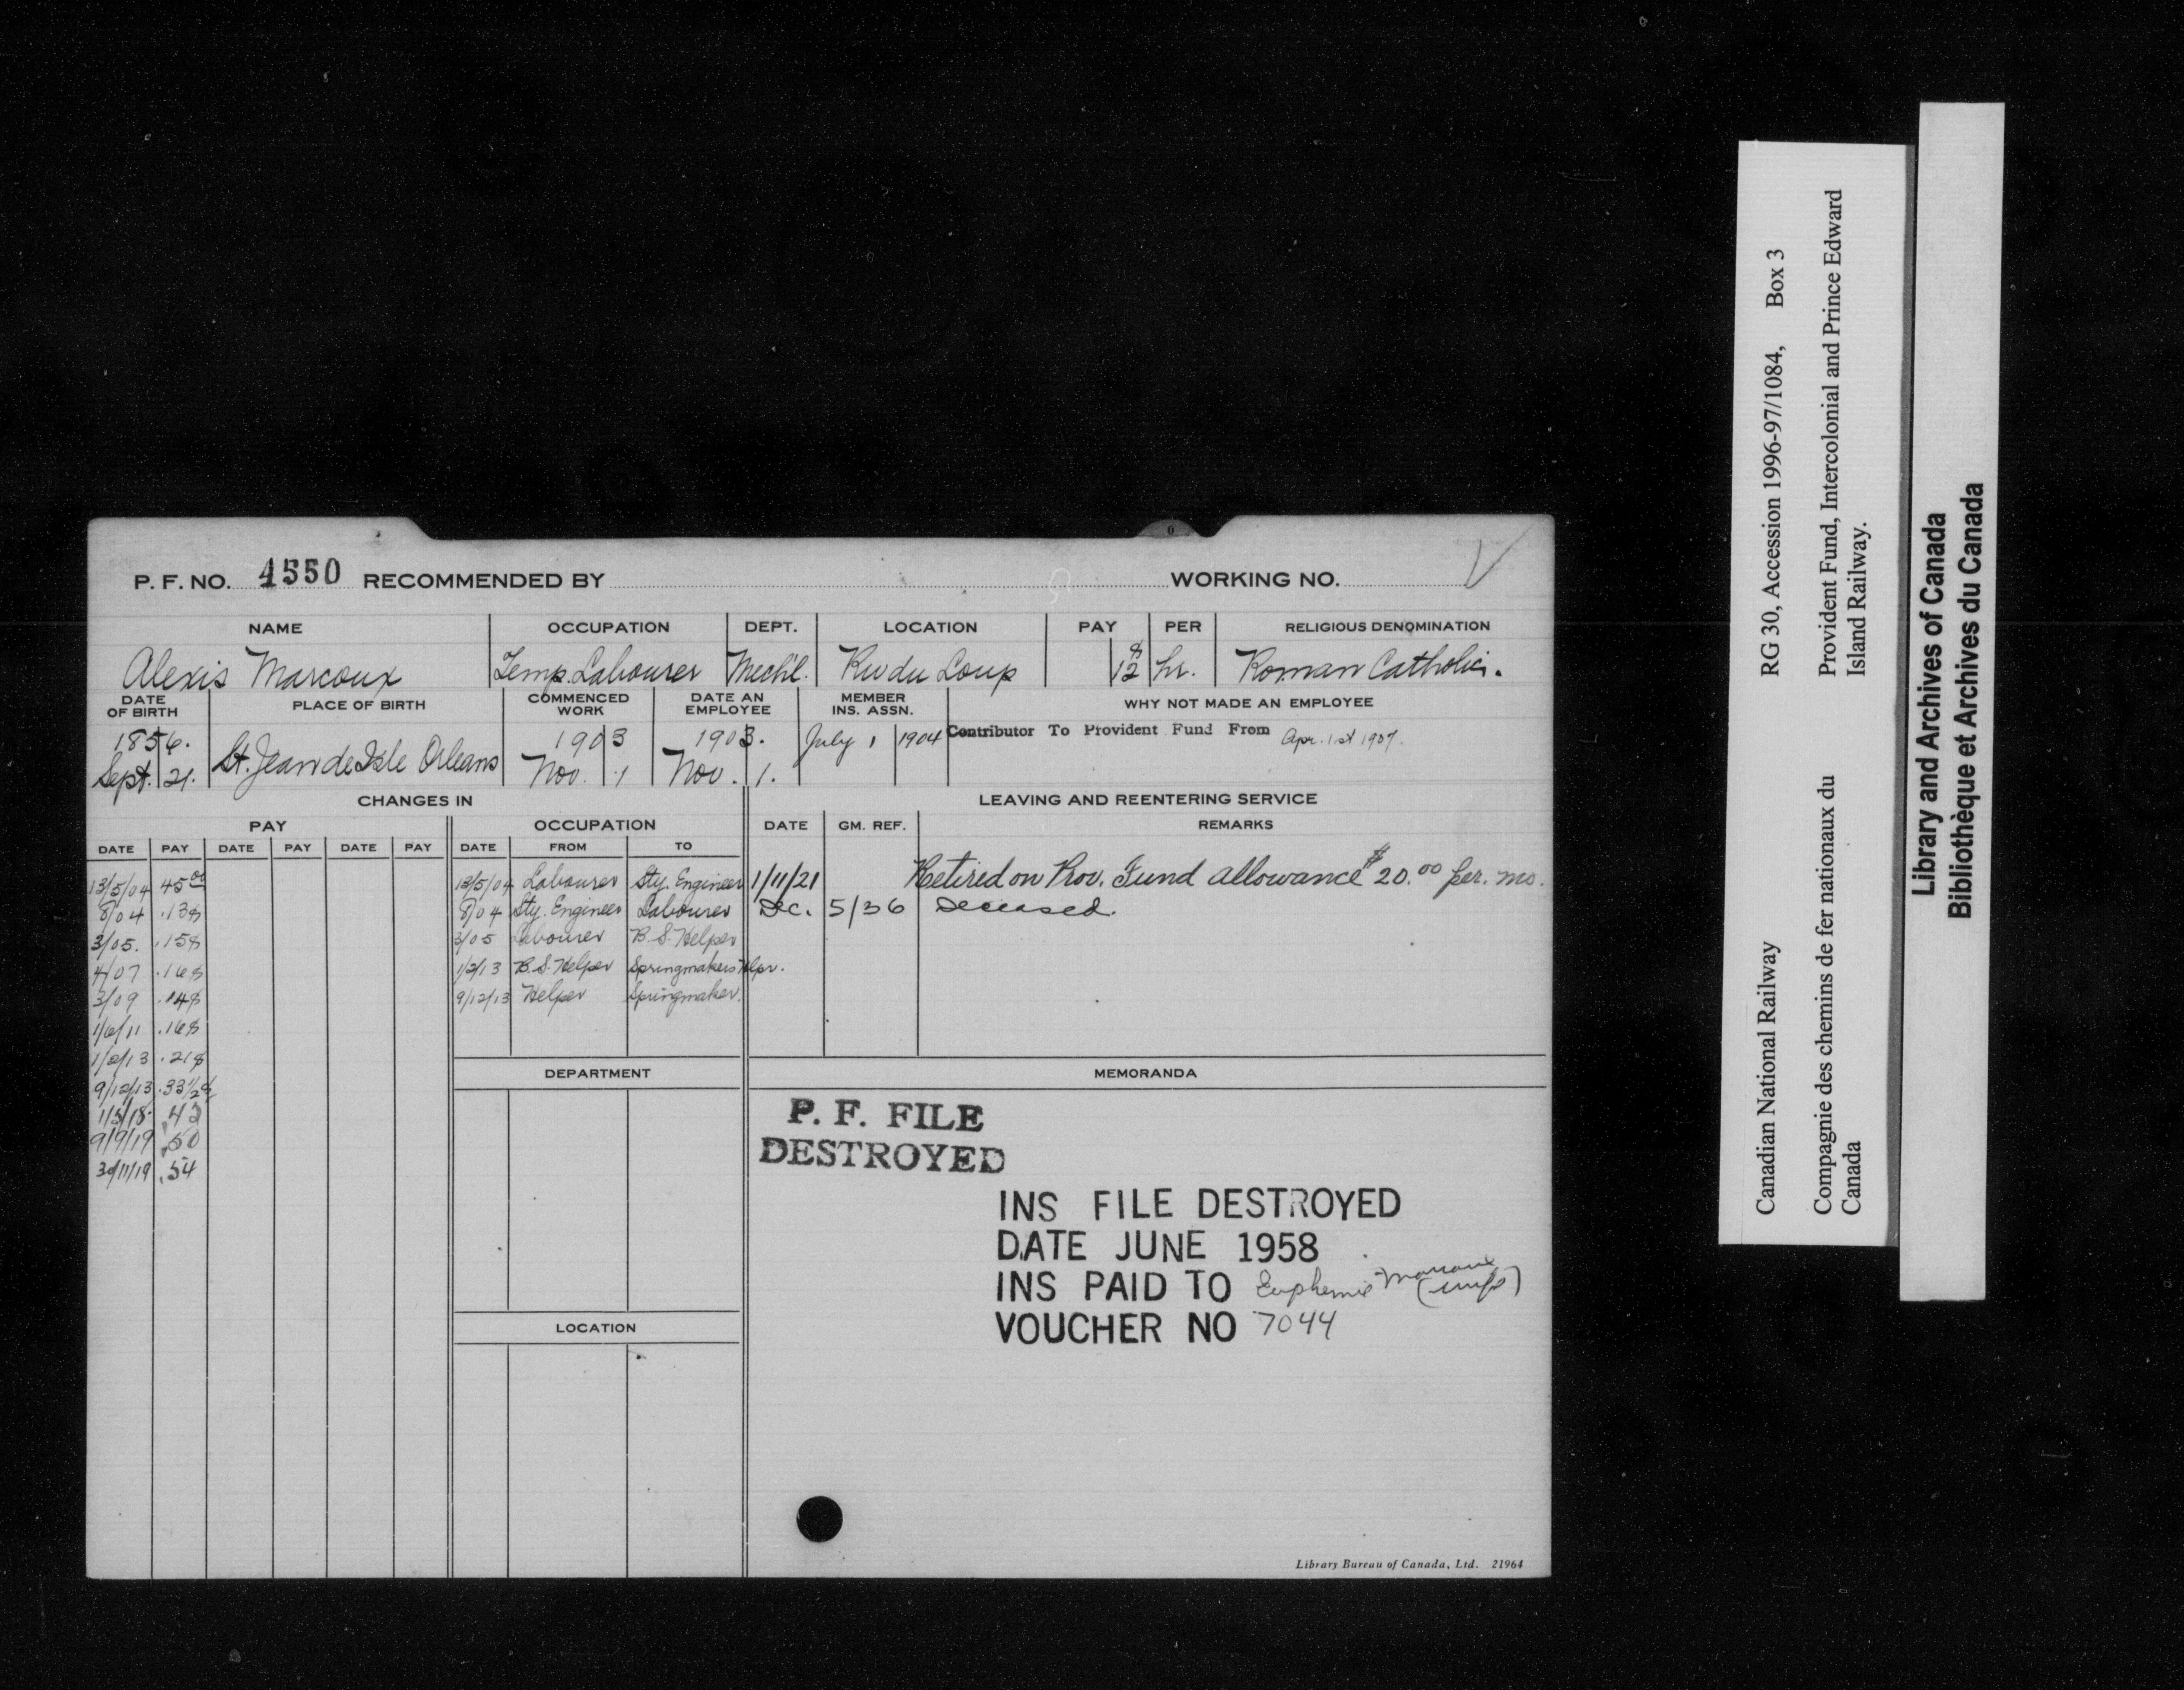 P. F. NO. 4550 RECOMMENDED BY WORKING NO. V
NAME OCCUPATION DEPT. LOCATION PAY PER RELIGIOUS DENOMINATION
Alexis Marcoux Temp. Labourer Mech'l. Riv du Loup 12¢ hr. Roman Catholic.
DATE OF BIRTH PLACE OF BIRTH COMMENCED WORK DATE AN EMPLOYEE MEMBER INS. ASSN. WHY NOT MADE AN EMPLOYEE
1856. 1903 1903. July 1 1904 Contributor To Provident Fund From Apr. 1st 1907.
Sept. 21. St. Jean de Isle Orleans Nov. 1 Nov. 1.
CHANGES IN LEAVING AND REENTERING SERVICE
PAY OCCUPATION DATE GM. REF. REMARKS
DATE PAY DATE PAY DATE PAY DATE FROM TO
13/5/04 45.00 13/5/04 Labourer Sty. Engineer 1/11/21 Retired on Prov. Fund allowance $20.00 per. mo.
8/04 .13¢ 8/04 Sty. Engineer Labourer Dec. 5/36 Deceased.
3/05. .15¢ 3/05 Labourer B. S. Helper
4/07 .16¢ 1/2/13 B. S. Helper Springmakers Hlpr.
3/09 .14¢ 9/12/13 Helper Springmaker.
1/6/11 .16¢
1/2/13 .21¢
9/12/13 .33 1/2¢
1/5/18. .42
9/9/19 .50
30/11/19 .54
DEPARTMENT MEMORANDA
P. F. FILE
DESTROYED
INS FILE DESTROYED
DATE JUNE 1958
INS PAID TO Euphemie Marcoux (wife)
VOUCHER NO 7044
LOCATION
Library Bureau of Canada, Ltd. 21964
Canadian National Railway RG 30, Accession 1996-97/1084, Box 3
Compagnie des chemins de fer nationaux du Canada
Provident Fund, Intercolonial and Prince Edward Island Railway.
Library and Archives of Canada
Bibliothèque et Archives du Canada